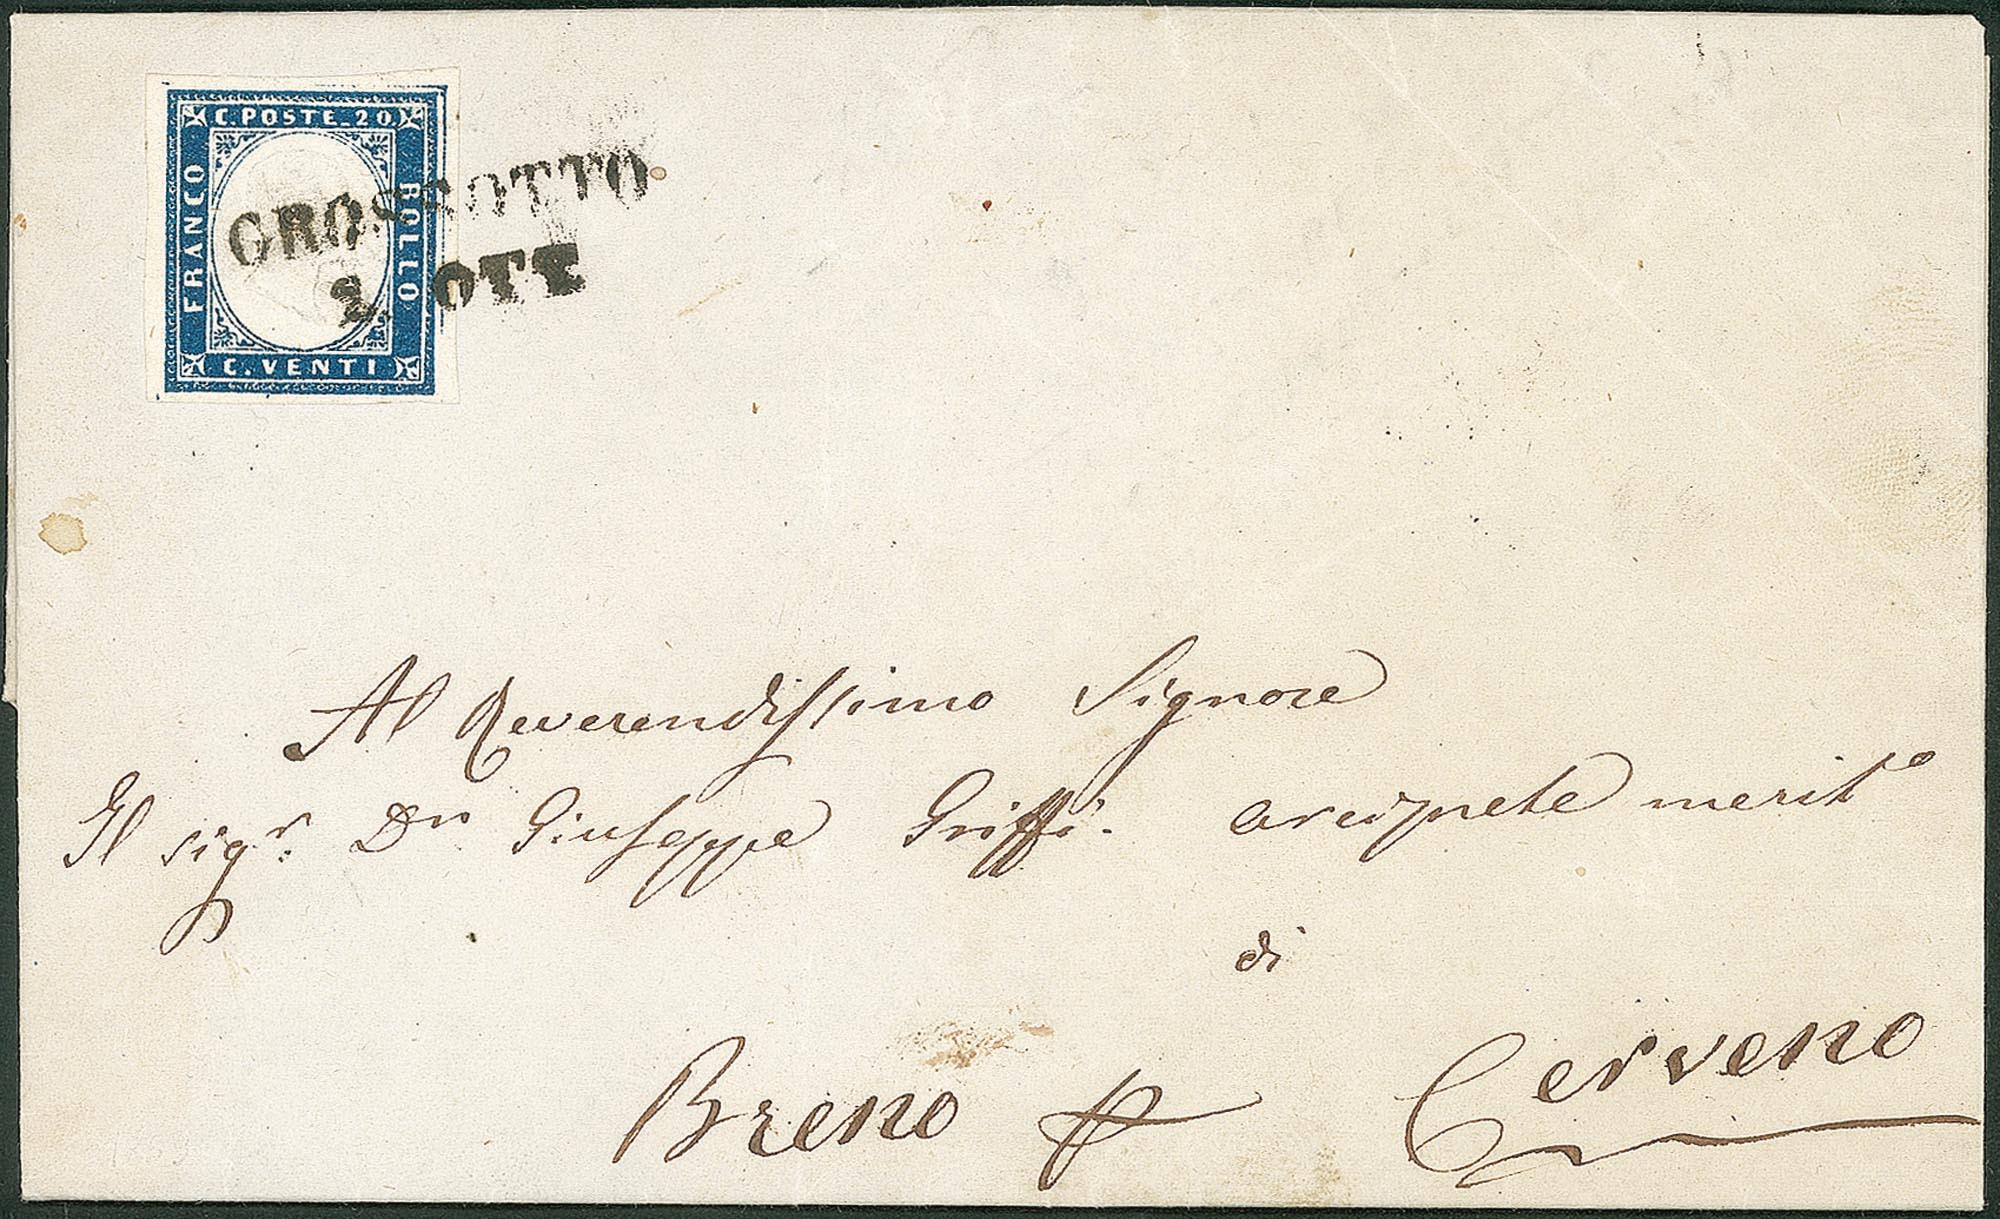 C. POSTE. 20.
FRANCO
BOLLO
C. VENTI
GROSSOTTO
2. OTT
Al Reverendissimo Signore
Il sigr. Dn Giuseppe Griffi. arciprete merito
di
Breno p Cerveno